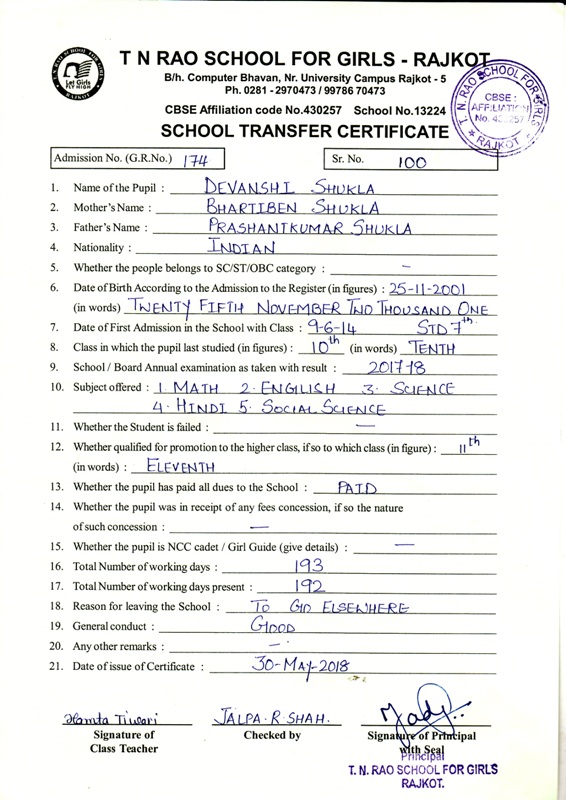 T N RAO SCHOOL FOR GIRLS - RAJKOT
B/h. Computer Bhavan, Nr. University Campus Rajkot - 5
Ph. 0281 - 2970473 / 99786 70473
CBSE Affiliation code No.430257 School No.13224
SCHOOL TRANSFER CERTIFICATE
Let Girls
FLY HIGH
T. N. RAO SCHOOL FOR GIRLS
CBSE :
AFFILIATION
No. 430257
RAJKOT
Admission No. (G.R.No.) 174 Sr. No. 100
1. Name of the Pupil : DEVANSHI SHUKLA
2. Mother's Name : BHARTIBEN SHUKLA
3. Father's Name : PRASHANTKUMAR SHUKLA
4. Nationality : INDIAN
5. Whether the people belongs to SC/ST/OBC category : –
6. Date of Birth According to the Admission to the Register (in figures) : 25-11-2001
(in words) TWENTY FIFTH NOVEMBER TWO THOUSAND ONE
7. Date of First Admission in the School with Class : 9-6-14 STD 7th
8. Class in which the pupil last studied (in figures) : 10th (in words) TENTH
9. School / Board Annual examination as taken with result : 2017-18
10. Subject offered : 1. MATH 2. ENGLISH 3. SCIENCE
4. HINDI 5. SOCIAL SCIENCE
11. Whether the Student is failed : —
12. Whether qualified for promotion to the higher class, if so to which class (in figure) : 11th
(in words) : ELEVENTH
13. Whether the pupil has paid all dues to the School : PAID
14. Whether the pupil was in receipt of any fees concession, if so the nature
of such concession : —
15. Whether the pupil is NCC cadet / Girl Guide (give details) : —
16. Total Number of working days : 193
17. Total Number of working days present : 192
18. Reason for leaving the School : TO GO ELSEWHERE
19. General conduct : GOOD
20. Any other remarks : –
21. Date of issue of Certificate : 30-MAY-2018
Mamta Tiwari JALPA. R. SHAH.
Signature of Checked by Signature of Principal
Class Teacher with Seal
Principal
T. N. RAO SCHOOL FOR GIRLS
RAJKOT.